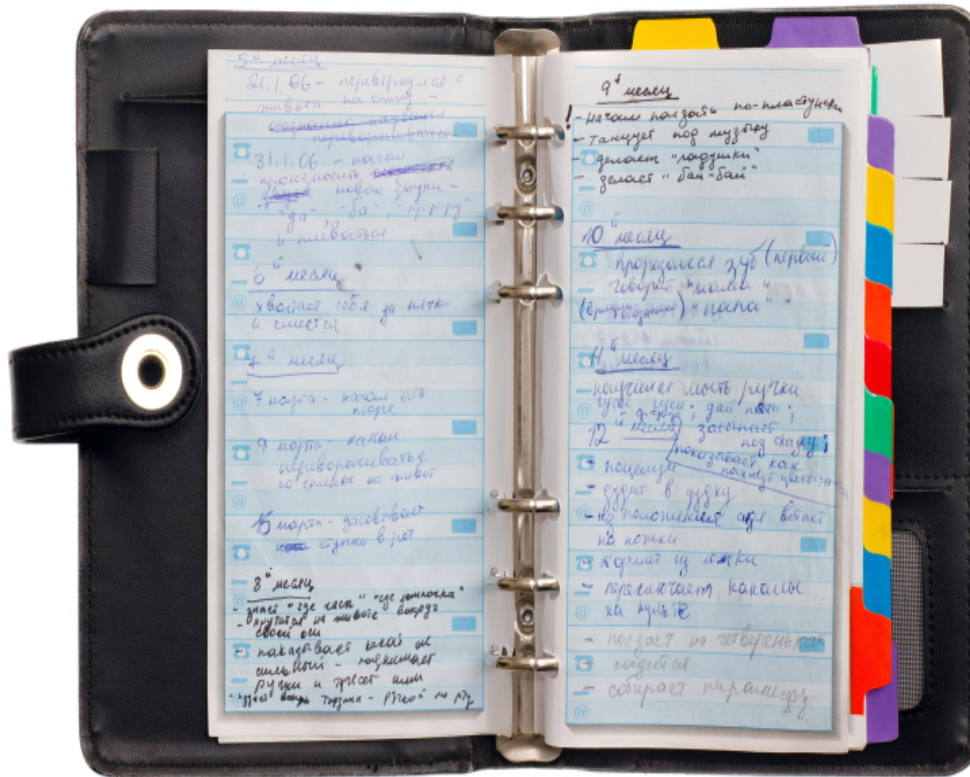 5й месяц
21.1.06 - перевернулся с
живота на спину -
переворачиваться
31.1.06 - начал
произносить
новые звуки -
"да", "ба",
и плеваться
6й месяц
хватает себя за пятки
и смеется
7й месяц
7 марта - начал есть
пюре
9 марта - начал
переворачиваться
со спины на живот
15 марта - засовывает
ступни в рот
8й месяц
- знает "где часы" "где лампочка"
- крутится на животе вокруг
своей оси
- показывает какой он
сильный - поднимает
ручки и трясет ими
9й месяц
! - начал ползать по-пластунски
- танцует под музыку
- делает "ладушки"
- делает "бай-бай"
10й месяц
прорезался зуб (первый)
говорит "мама"
"папа"
11й месяц
- научился мыть ручки
гуси гуси; дай пять;
12й месяц засыпает
под сказку;
показывает как
пахнут цветочки
- поцелуи
- дудит в дудку
- из положения сидя встает
на ножки
- кормит из ложки
- переключает каналы
на пульте
- ползает на четвереньках
- садится
- собирает пирамиду